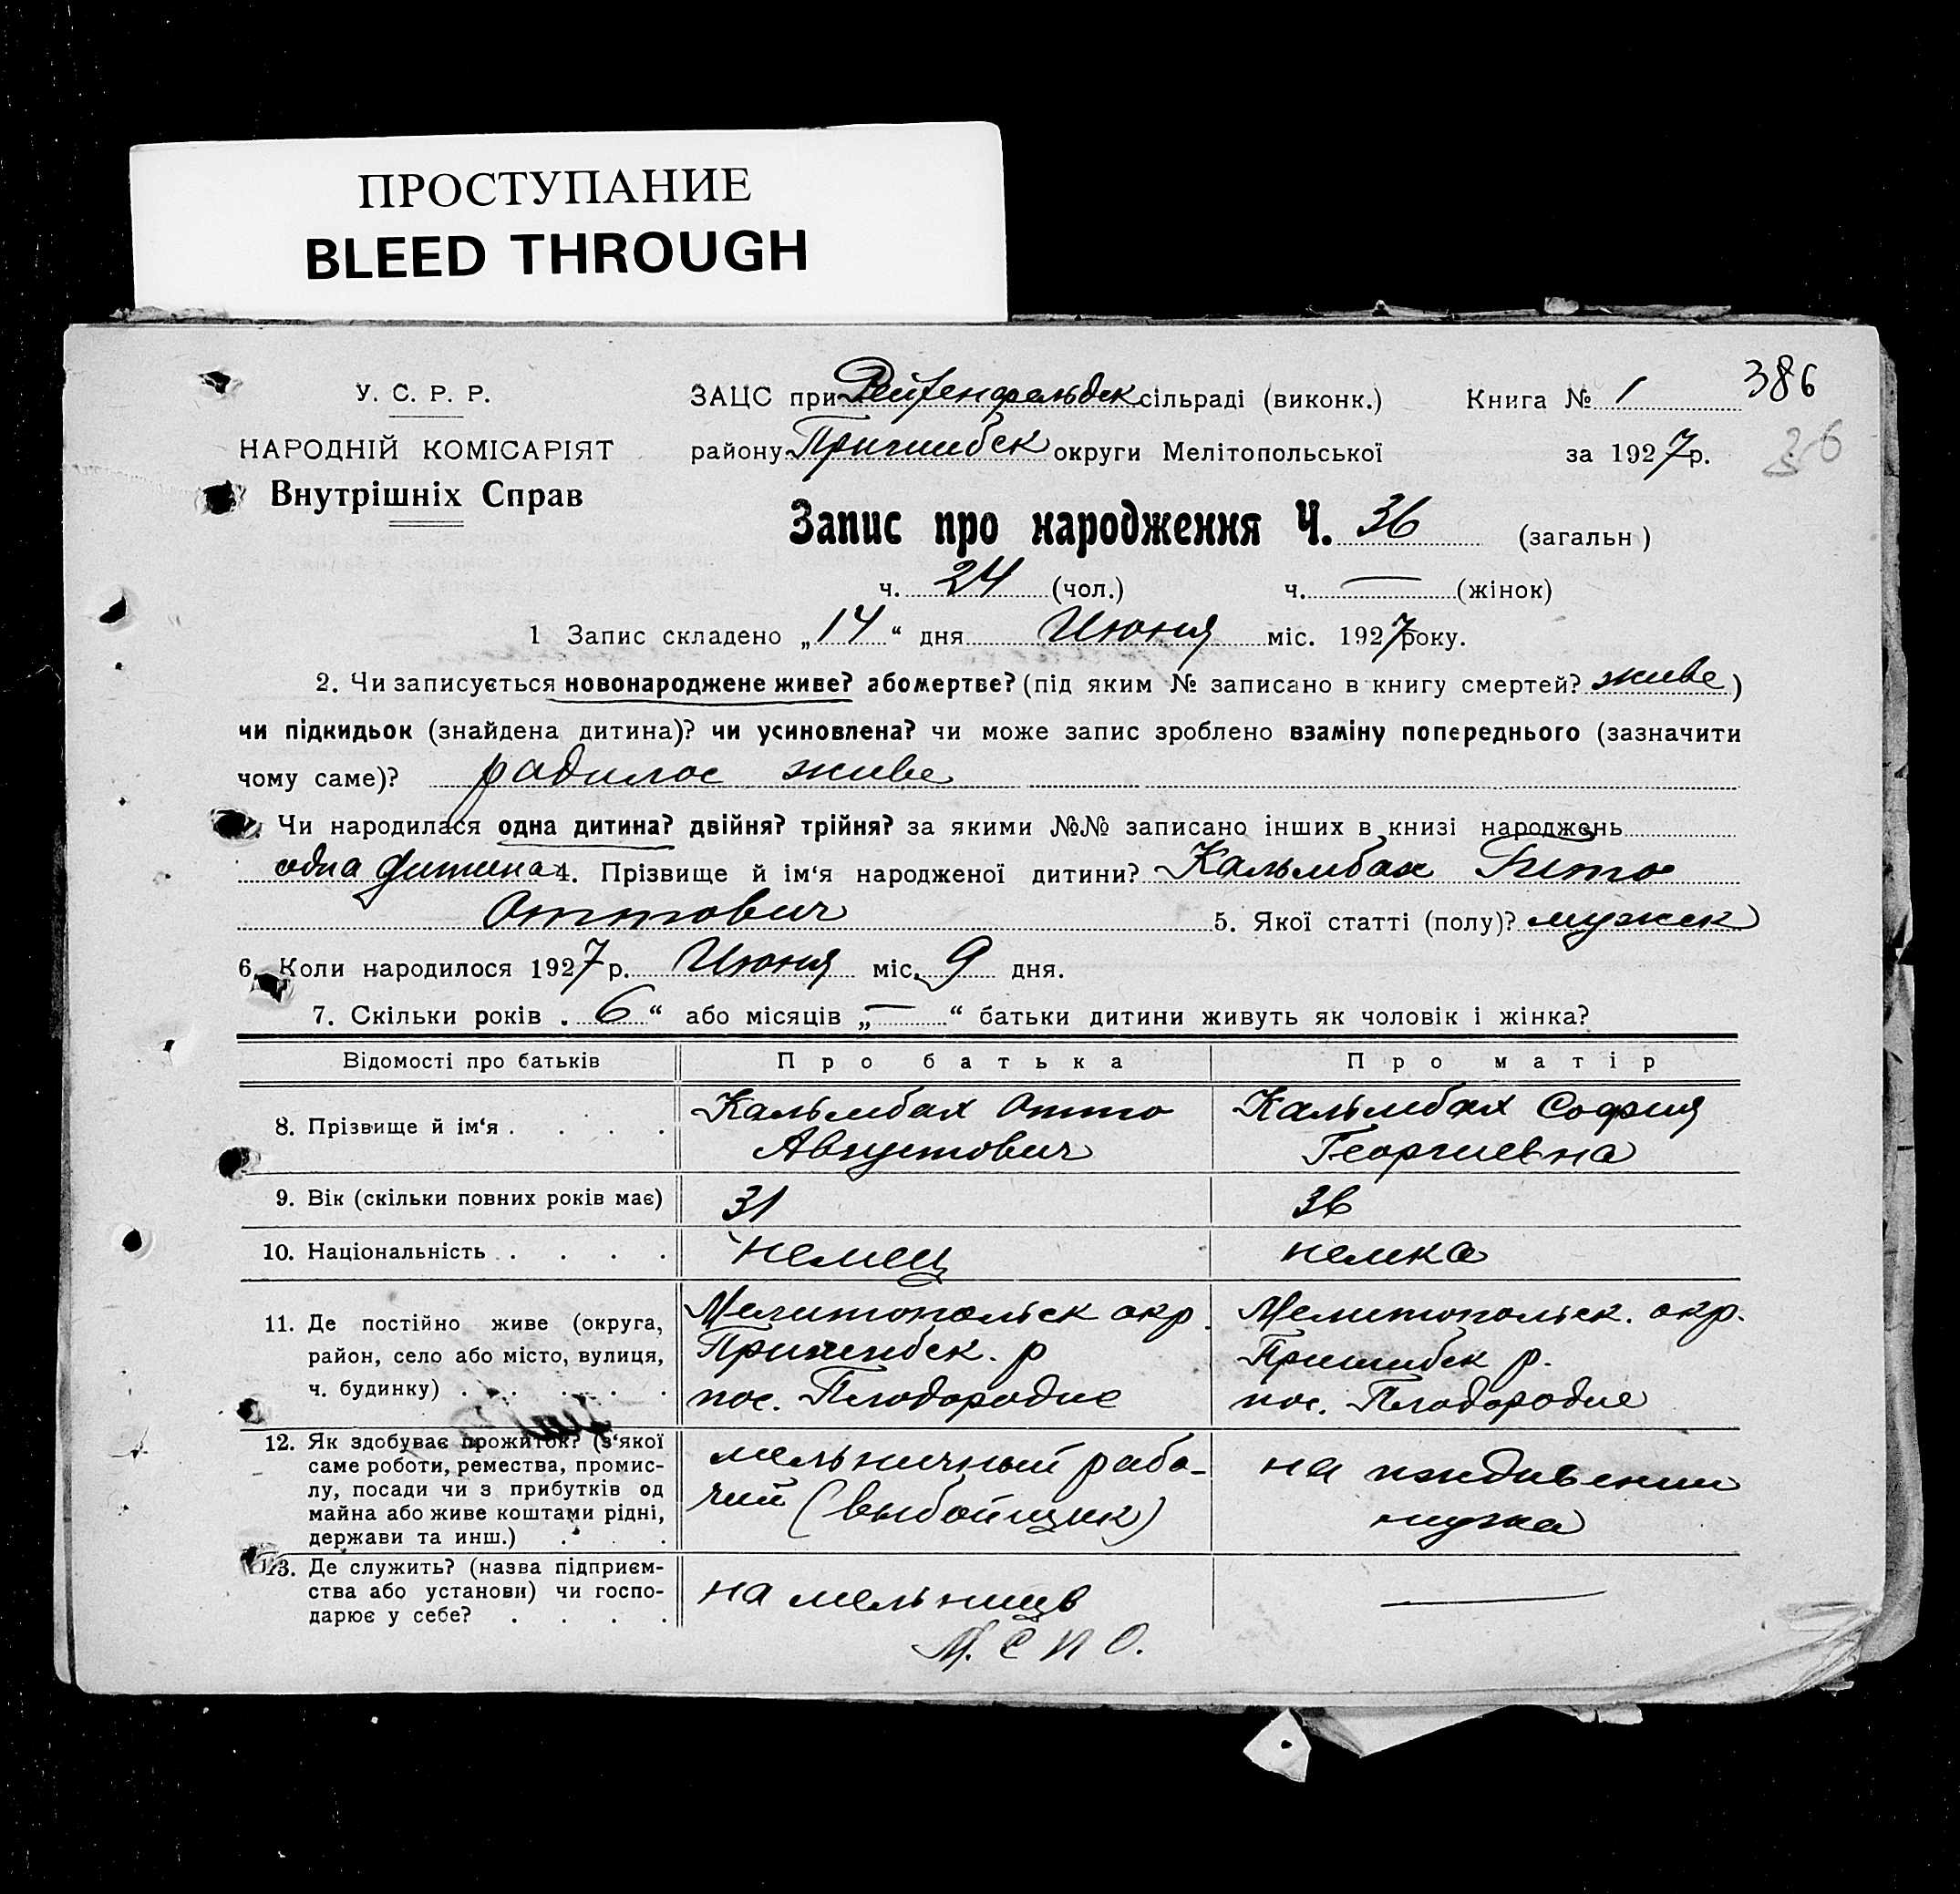 ПРОСТУПАНИЕ
BLEED THROUGH
386
У. С. Р. Р.
ЗАЦС при Рейхенфельдск сільраді (виконк.) Книга № 1
НАРОДНІЙ КОМІСАРІЯТ
району Пришибск округи Мелітопольської за 1927 р.
36
Внутрішніх Справ
Запис про народження Ч. 36 (загальн)
ч. 24 (чол.) ч. — (жінок)
1 Запис складено „14“ дня Июня міс. 1927 року.
2. Чи записується новонароджене живе? або мертве? (під яким № записано в книгу смертей? живе)
чи підкидьок (знайдена дитина)? чи усиновлена? чи може запис зроблено взаміну попереднього (зазначити
чому саме)? радилос живе
Чи народилася одна дитина? двійня? трійня? за якими №№ записано інших в книзі народжень
одна дитина 4. Прізвище й ім‘я народженої дитини? Кальмбах
Оттович 5. Якої статті (полу)? мужск
6. Коли народилося 1927 р. Июня міс. 9 дня.
7. Скільки років „6“ або місяців „—“ батьки дитини живуть як чоловік і жінка?
Відомості про батьків Про батька Про матір
8. Прізвище й ім‘я . . . . Кальмбах Отто Августович Кальмбах София Георгиевна
9. Вік (скільки повних років має) 31 36
10. Національність . . . . немец немка
11. Де постійно живе (округа, Мелитопольск окр. Мелитопольск. окр.
район, село або місто, вулиця, Пришибск. р Пришибск р.
ч. будинку) . . . . . пос. Плодородие пос. Плодородие
12. Як здобуває прожиток? (з‘якої
саме роботи, ремества, промис- мельничный рабо- на иждивении
лу, посади чи з прибутків од чий (выбойщик) мужа
майна або живе коштами рідні,
держави та инш.) . . .
13. Де служить? (назва підприєм-
ства або установи) чи госпо- на мельнице —
дарює у себе? . . . .
М. С П О.